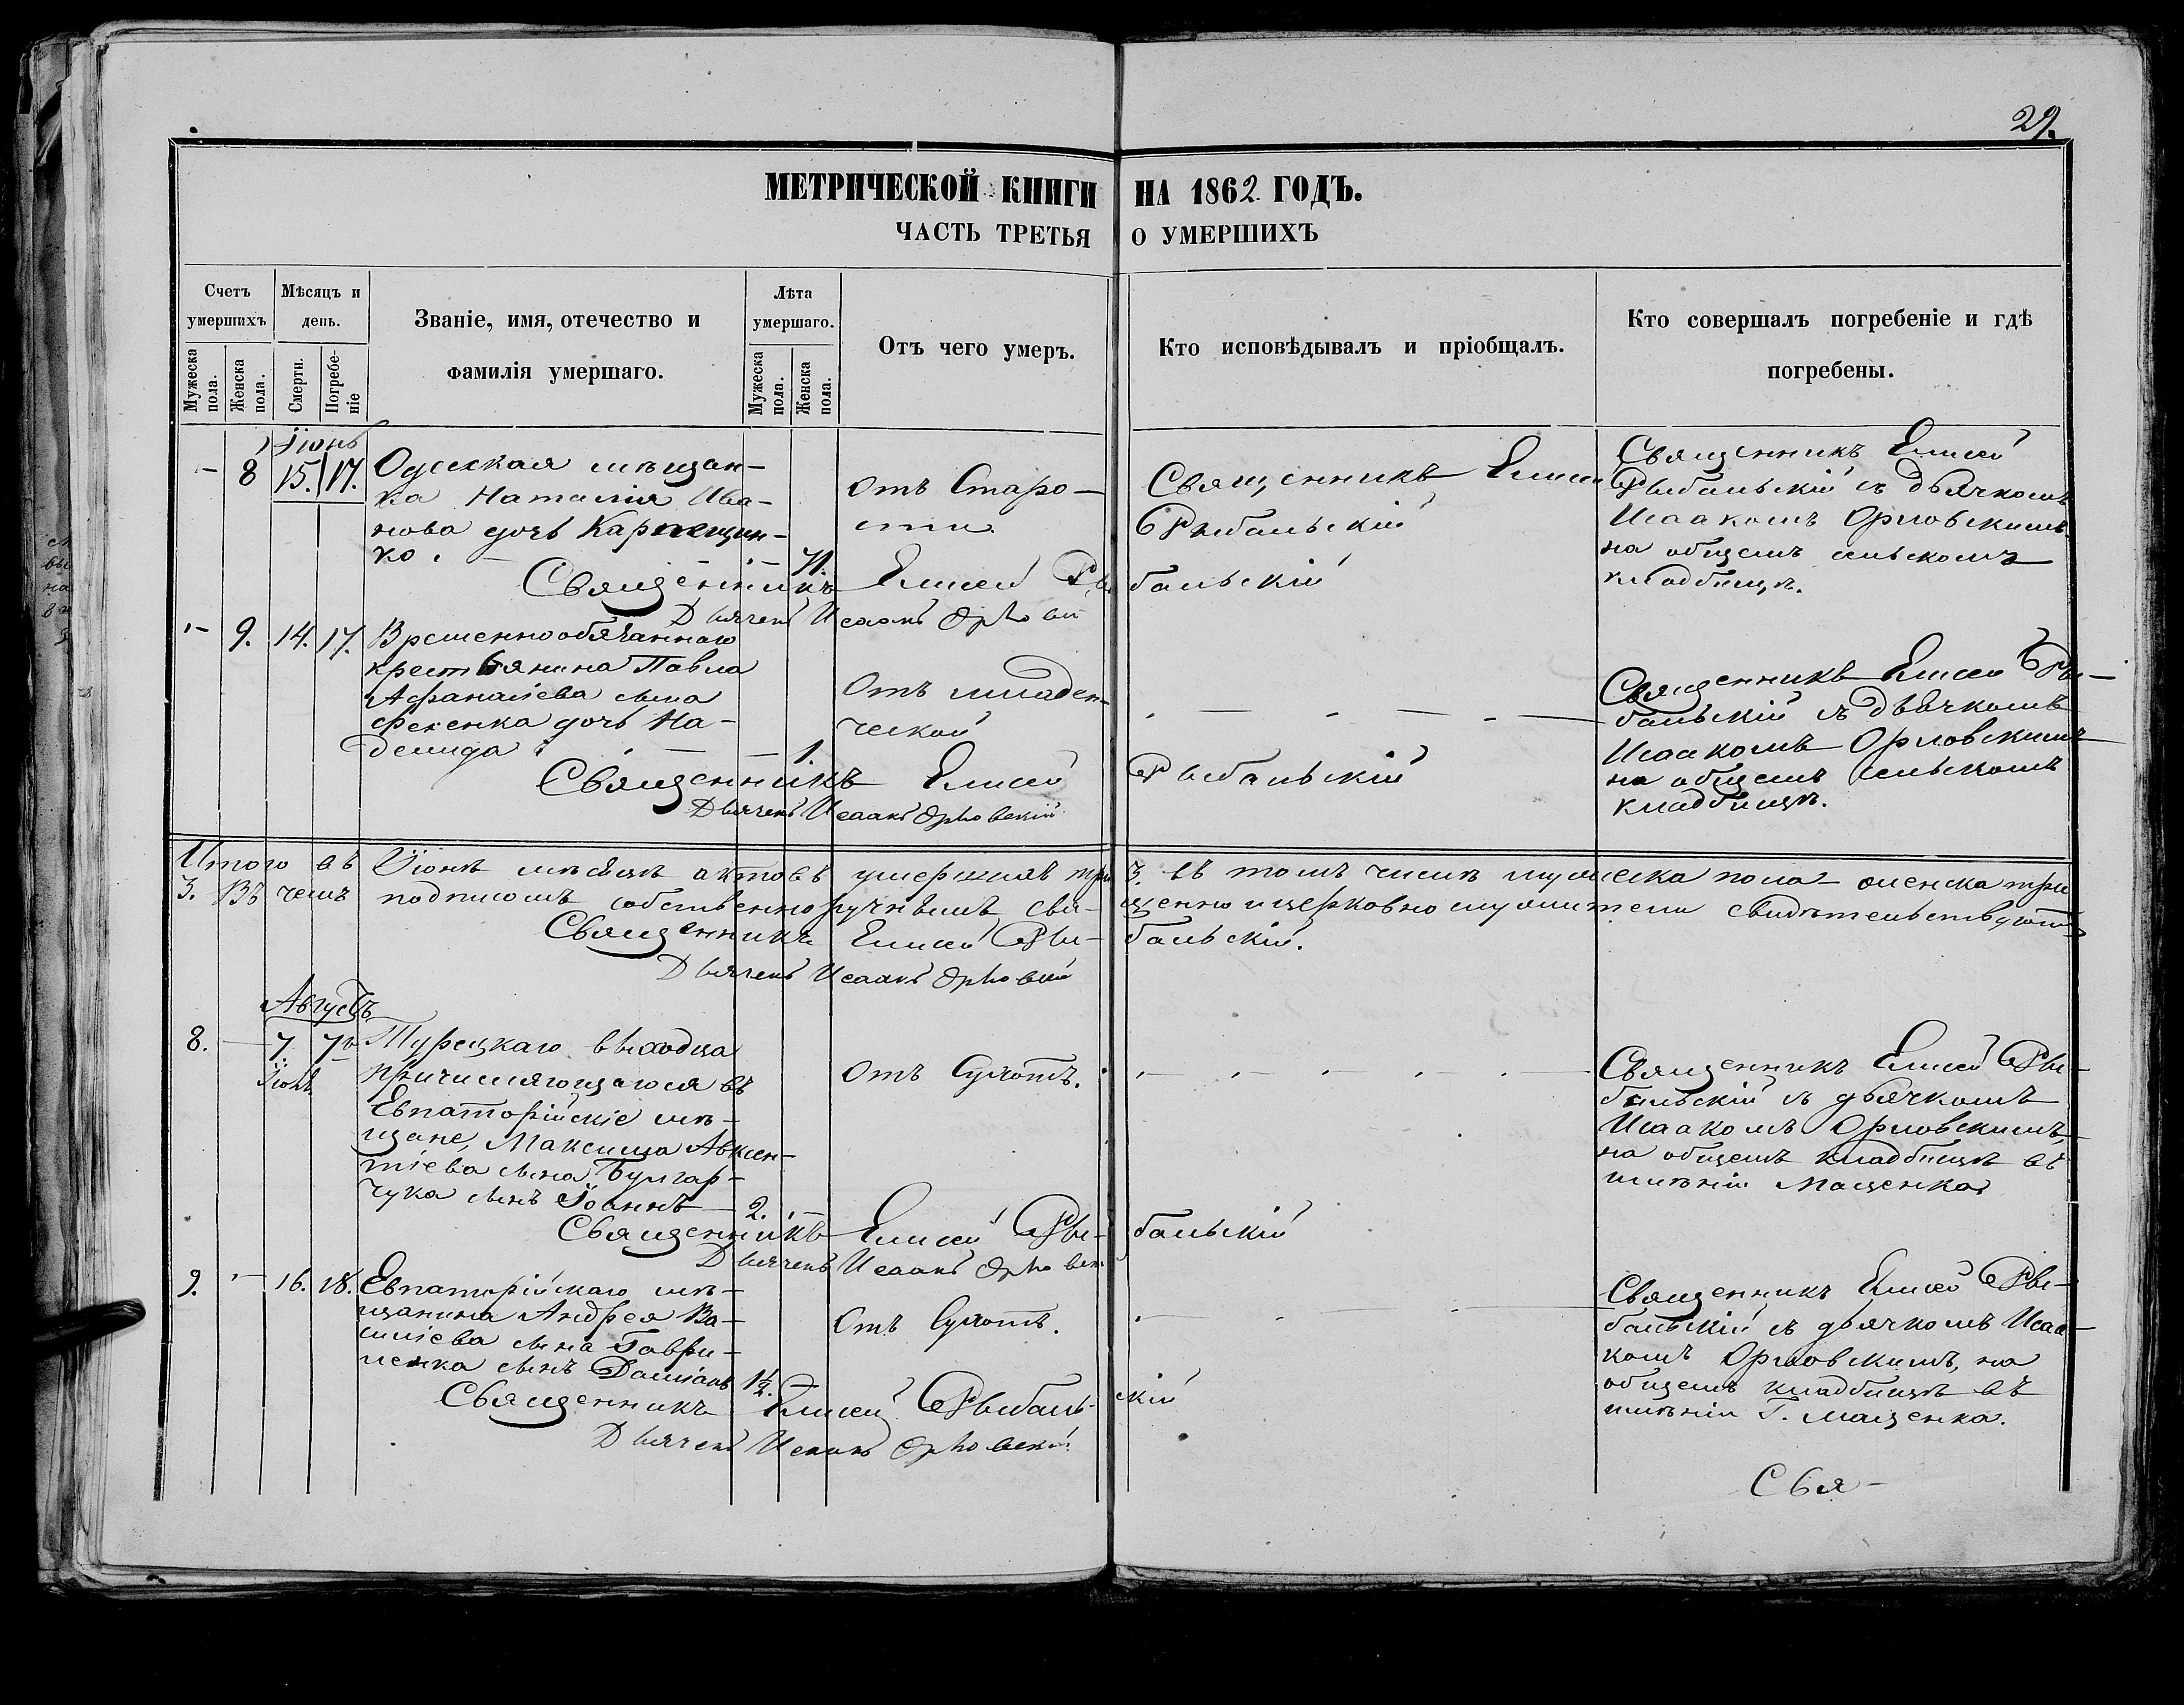 29.
МЕТРИЧЕСКОЙ КНИГИ НА 1862 ГОДЪ.
ЧАСТЬ ТРЕТЬЯ О УМЕРШИХЪ
Счетъ умершихъ
Мужеска пола.
Женска пола.
Мѣсяцъ и день.
Смерти.
Погребеніе
Званіе, имя, отечество и фамилія умершаго.
Лѣта умершаго.
Мужеска пола.
Женска пола.
Отъ чего умеръ.
Кто исповѣдывалъ и пріобщалъ.
Кто совершалъ погребеніе и гдѣ погребены.
Іюнь
– 8 15. 17.
Одесская мѣщан-
ка Наталія Ива-
нова дочь
ко. – 71.
отъ Старо-
сти.
Священникъ Елисей
Рыбальскій
Священникъ Елисей
Рыбальскій съ дьячкомъ
Исаакомъ Орловскимъ
на общемъ сельскомъ
кладбищѣ.
Священникъ Елисей Рыбальскій
Дьячекъ Исаакъ Орловскій
– 9. 14. 17.
Временнообязаннаго
крестьянина Павла
Афанасіева сына
Фененка дочь На-
демида – 1.
Отъ младен-
ческой
Священникъ Елисей Ры-
бальскій съ дьячкомъ
Исаакомъ Орловскимъ
на общемъ сельскомъ
кладбищѣ.
Священникъ Елисей Рыбальскій
Дьячекъ Исаакъ Орловскій
Итого въ Іюнѣ мѣсяцѣ актовъ умершихъ три 3. въ томъ числѣ мужеска пола – женска три
3. Въ чемъ подписомъ собственноручнымъ священно и церковно служители свидѣтельствуютъ
Священникъ Елисей Рыбальскій.
Дьячекъ Исаакъ Орловскій
Августъ
8. – 7. 7.
Іюнь
Турецкаго выходца
причисляющагося въ
Евпаторійскіе мѣ-
щане, Максима Авксен-
тіева сына Булгар-
чука сынъ Іоаннъ – 2. –
Отъ Сухотъ.
Священникъ Елисей Ры-
бальскій съ дьячкомъ
Исаакомъ Орловскимъ,
на общемъ кладбищѣ въ
имѣніи Мащенка
Священникъ Елисей Рыбальскій
Дьячекъ Исаакъ Орловскій
9. – 16. 18.
Евпаторійскаго мѣ-
щанина Андрея Ва-
силіева сына Гаври-
ленка сынъ Даміанъ 1½. –
Отъ Сухотъ.
Священникъ Елисей Ры-
бальскій съ дьячкомъ Исаа-
комъ Орловскимъ, на
общемъ кладбищѣ въ
имѣніи Г. Мащенка.
Священникъ Елисей Рыбальскій
Дьячекъ Исаакъ Орловскій
Свя-